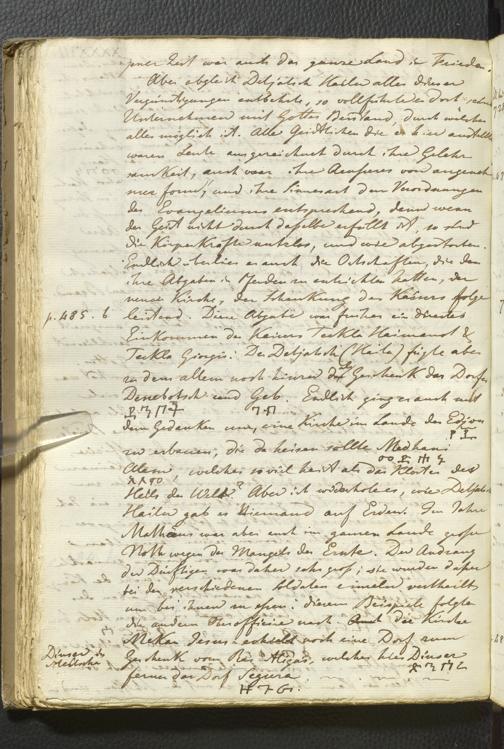 jener Zeit war auch das ganze Land in Frieden.
Aber obgleich Detjatsch Hailu alles dieser
Vergünstigungen entbehrte, so vollführte er dort
Unternehmen mit Gottes Beistand, durch welchen
alles möglich ist. Alle Geistlichen die er hier anstellte
waren Leute ausgezeichnet durch ihre Gelehr
samkeit, auch war ihre Aeuseres von angeneh
mer form, und ihre Sinnesart den Verordnungen
des Evangeliums entsprechend, denn wenn
der Geist nicht durch dasselbe erfüllt ist, so sind
die Körperkräfte nutzlos, und wie abgestorben.
Endlich er auch die Ortschaften, die dem
ihre Abgaben in zu entrichten hatten, der
neuen Kirche, der Schenkung des Kaisers folge
p. 485. b leistend. Diese Abgabe war früher ein directes
Einkommen des Kaisers Teckla Haimanot &
Teckla Giorgis. Der Detjatsch (Hailu) fügte aber
zu dem allem noch hinzu das Geschenk des Dorfes
Denebotsch und Geb. Endlich ging er auch mit
dem Gedanken um, eine Kirche im Lande des Edjon
zu erbauen, die da heisen sollte Medhani
Alem, welches soviel heist als das Kloster des
Heils der Welt? Aber ich wiederhole es, wie Detjatsch
Hailu gab es Niemand auf Erden. Im Jahre
Mathäus war aber auch im ganzen Lande grose
Noth wegen des Mangels der Ernte. Der Andrang
der Dürftigen war daher sehr gros; sie wurden daher
bei den verschiedenen Soldaten einzeln vertheilt,
um bei ihnen zu essen. diesem Beispiele folgten
die andern nach. Auch die Kirche
Mekan Jesus erhielt noch eine Dorf zum
Geschenk vom Ras welches hies Dinsar
ferner das Dorf Segura